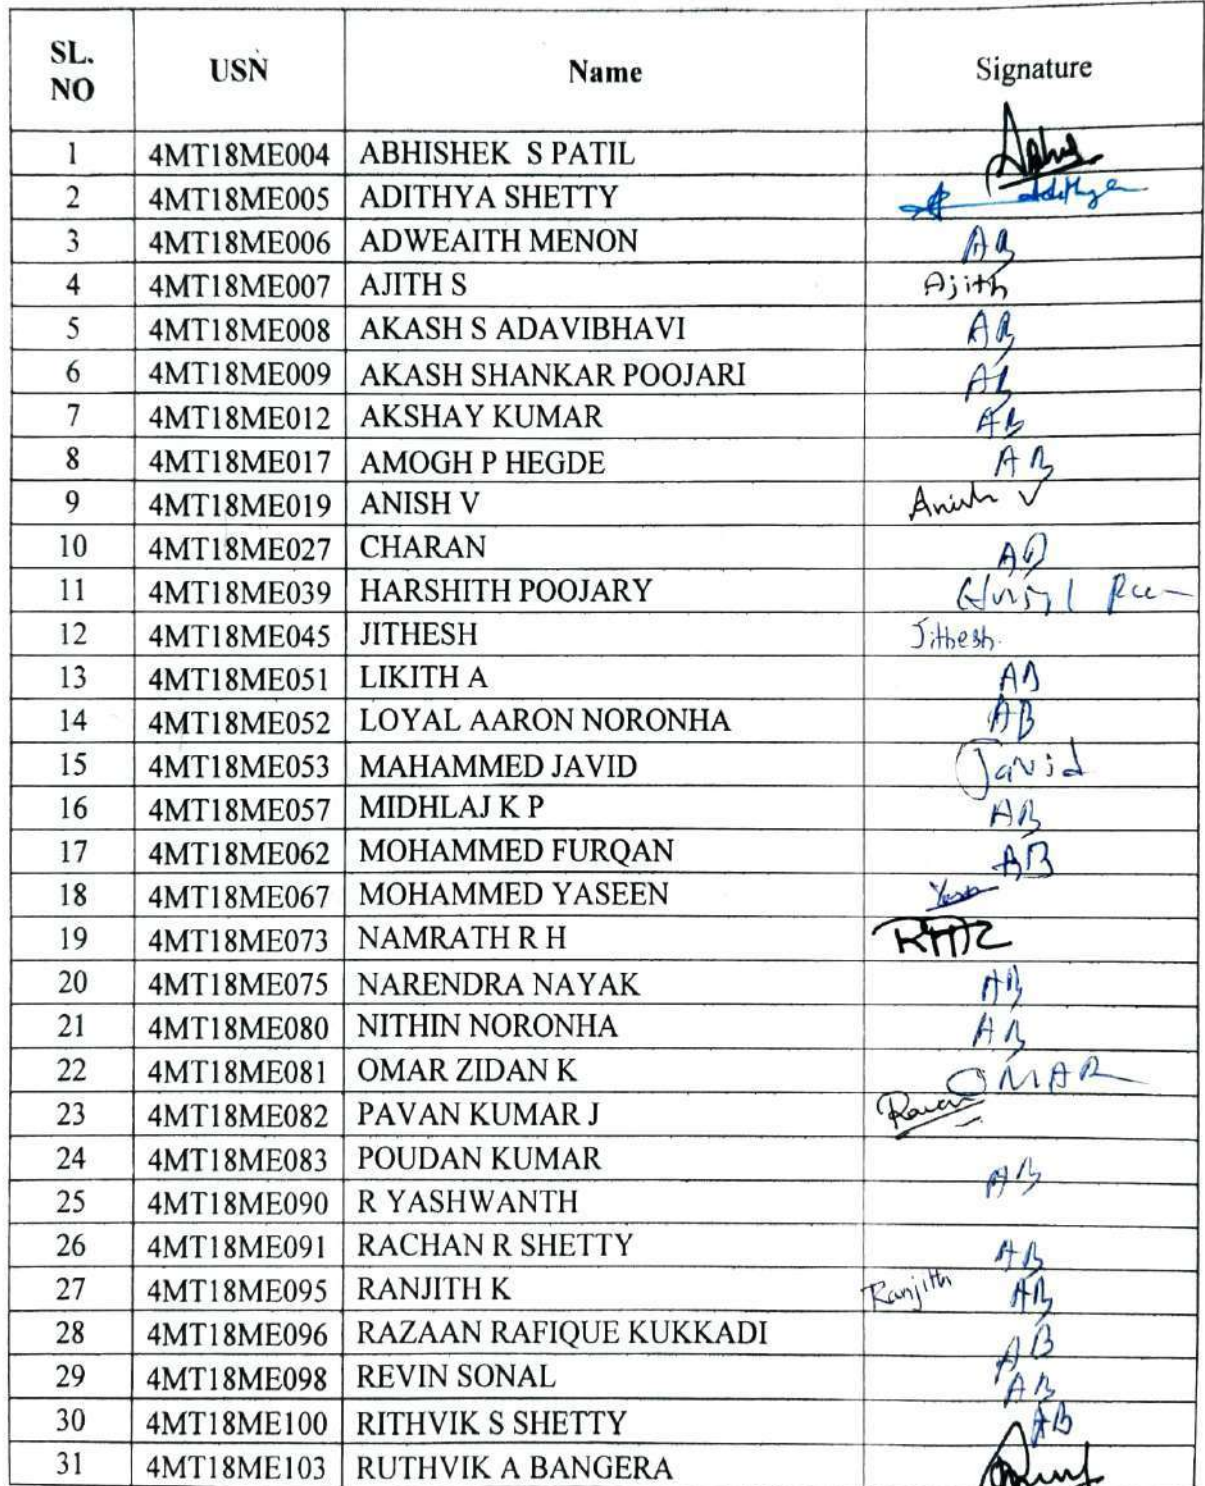 SL. NO USN Name Signature
1 4MT18ME004 ABHISHEK S PATIL Abhis
2 4MT18ME005 ADITHYA SHETTY Adithya
3 4MT18ME006 ADWEAITH MENON AB
4 4MT18ME007 AJITH S Ajith
5 4MT18ME008 AKASH S ADAVIBHAVI AB
6 4MT18ME009 AKASH SHANKAR POOJARI AB
7 4MT18ME012 AKSHAY KUMAR AB
8 4MT18ME017 AMOGH P HEGDE AB
9 4MT18ME019 ANISH V Anish V
10 4MT18ME027 CHARAN AB
11 4MT18ME039 HARSHITH POOJARY
12 4MT18ME045 JITHESH Jithesh.
13 4MT18ME051 LIKITH A AB
14 4MT18ME052 LOYAL AARON NORONHA AB
15 4MT18ME053 MAHAMMED JAVID Javid
16 4MT18ME057 MIDHLAJ K P AB
17 4MT18ME062 MOHAMMED FURQAN AB
18 4MT18ME067 MOHAMMED YASEEN
19 4MT18ME073 NAMRATH R H
20 4MT18ME075 NARENDRA NAYAK AB
21 4MT18ME080 NITHIN NORONHA AB
22 4MT18ME081 OMAR ZIDAN K OMAR
23 4MT18ME082 PAVAN KUMAR J Pavan
24 4MT18ME083 POUDAN KUMAR AB
25 4MT18ME090 R YASHWANTH
26 4MT18ME091 RACHAN R SHETTY AB
27 4MT18ME095 RANJITH K Ranjith AB
28 4MT18ME096 RAZAAN RAFIQUE KUKKADI AB
29 4MT18ME098 REVIN SONAL AB
30 4MT18ME100 RITHVIK S SHETTY AB
31 4MT18ME103 RUTHVIK A BANGERA